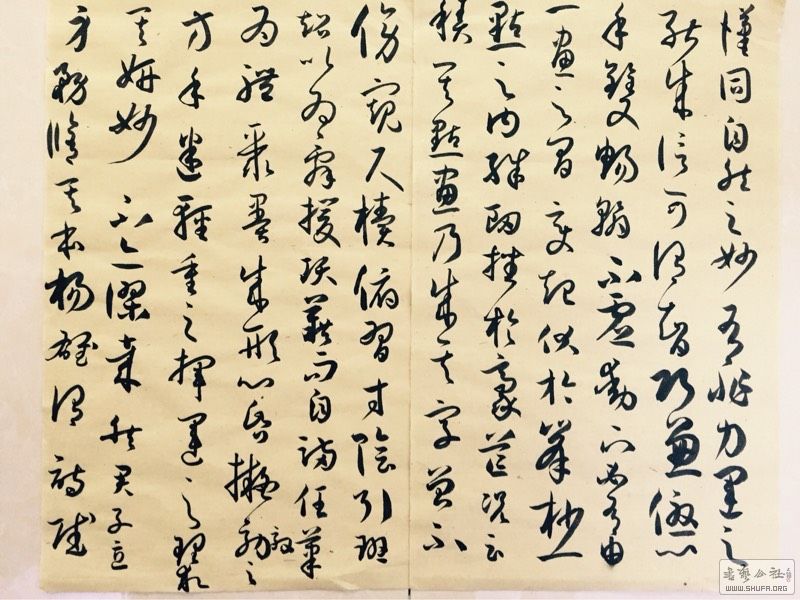 漢同自然之妙有非力運之
能成信可謂智巧兼優心
手雙暢翰不虛動下必有由
一畫之間變起伏於峯杪一
點之內殊衄挫於豪芒況云
積其點畫乃成其字曾不
傍窺尺牘俯習寸陰引班
超以為辭援項籍而自滿任筆
為體聚墨成形心昏擬效之
方手迷輕重之揮運之理求
其妍妙不亦謬哉然君子立
身務脩其本楊雄謂詩賦
書藝公社
WWW.SHUFA.ORG